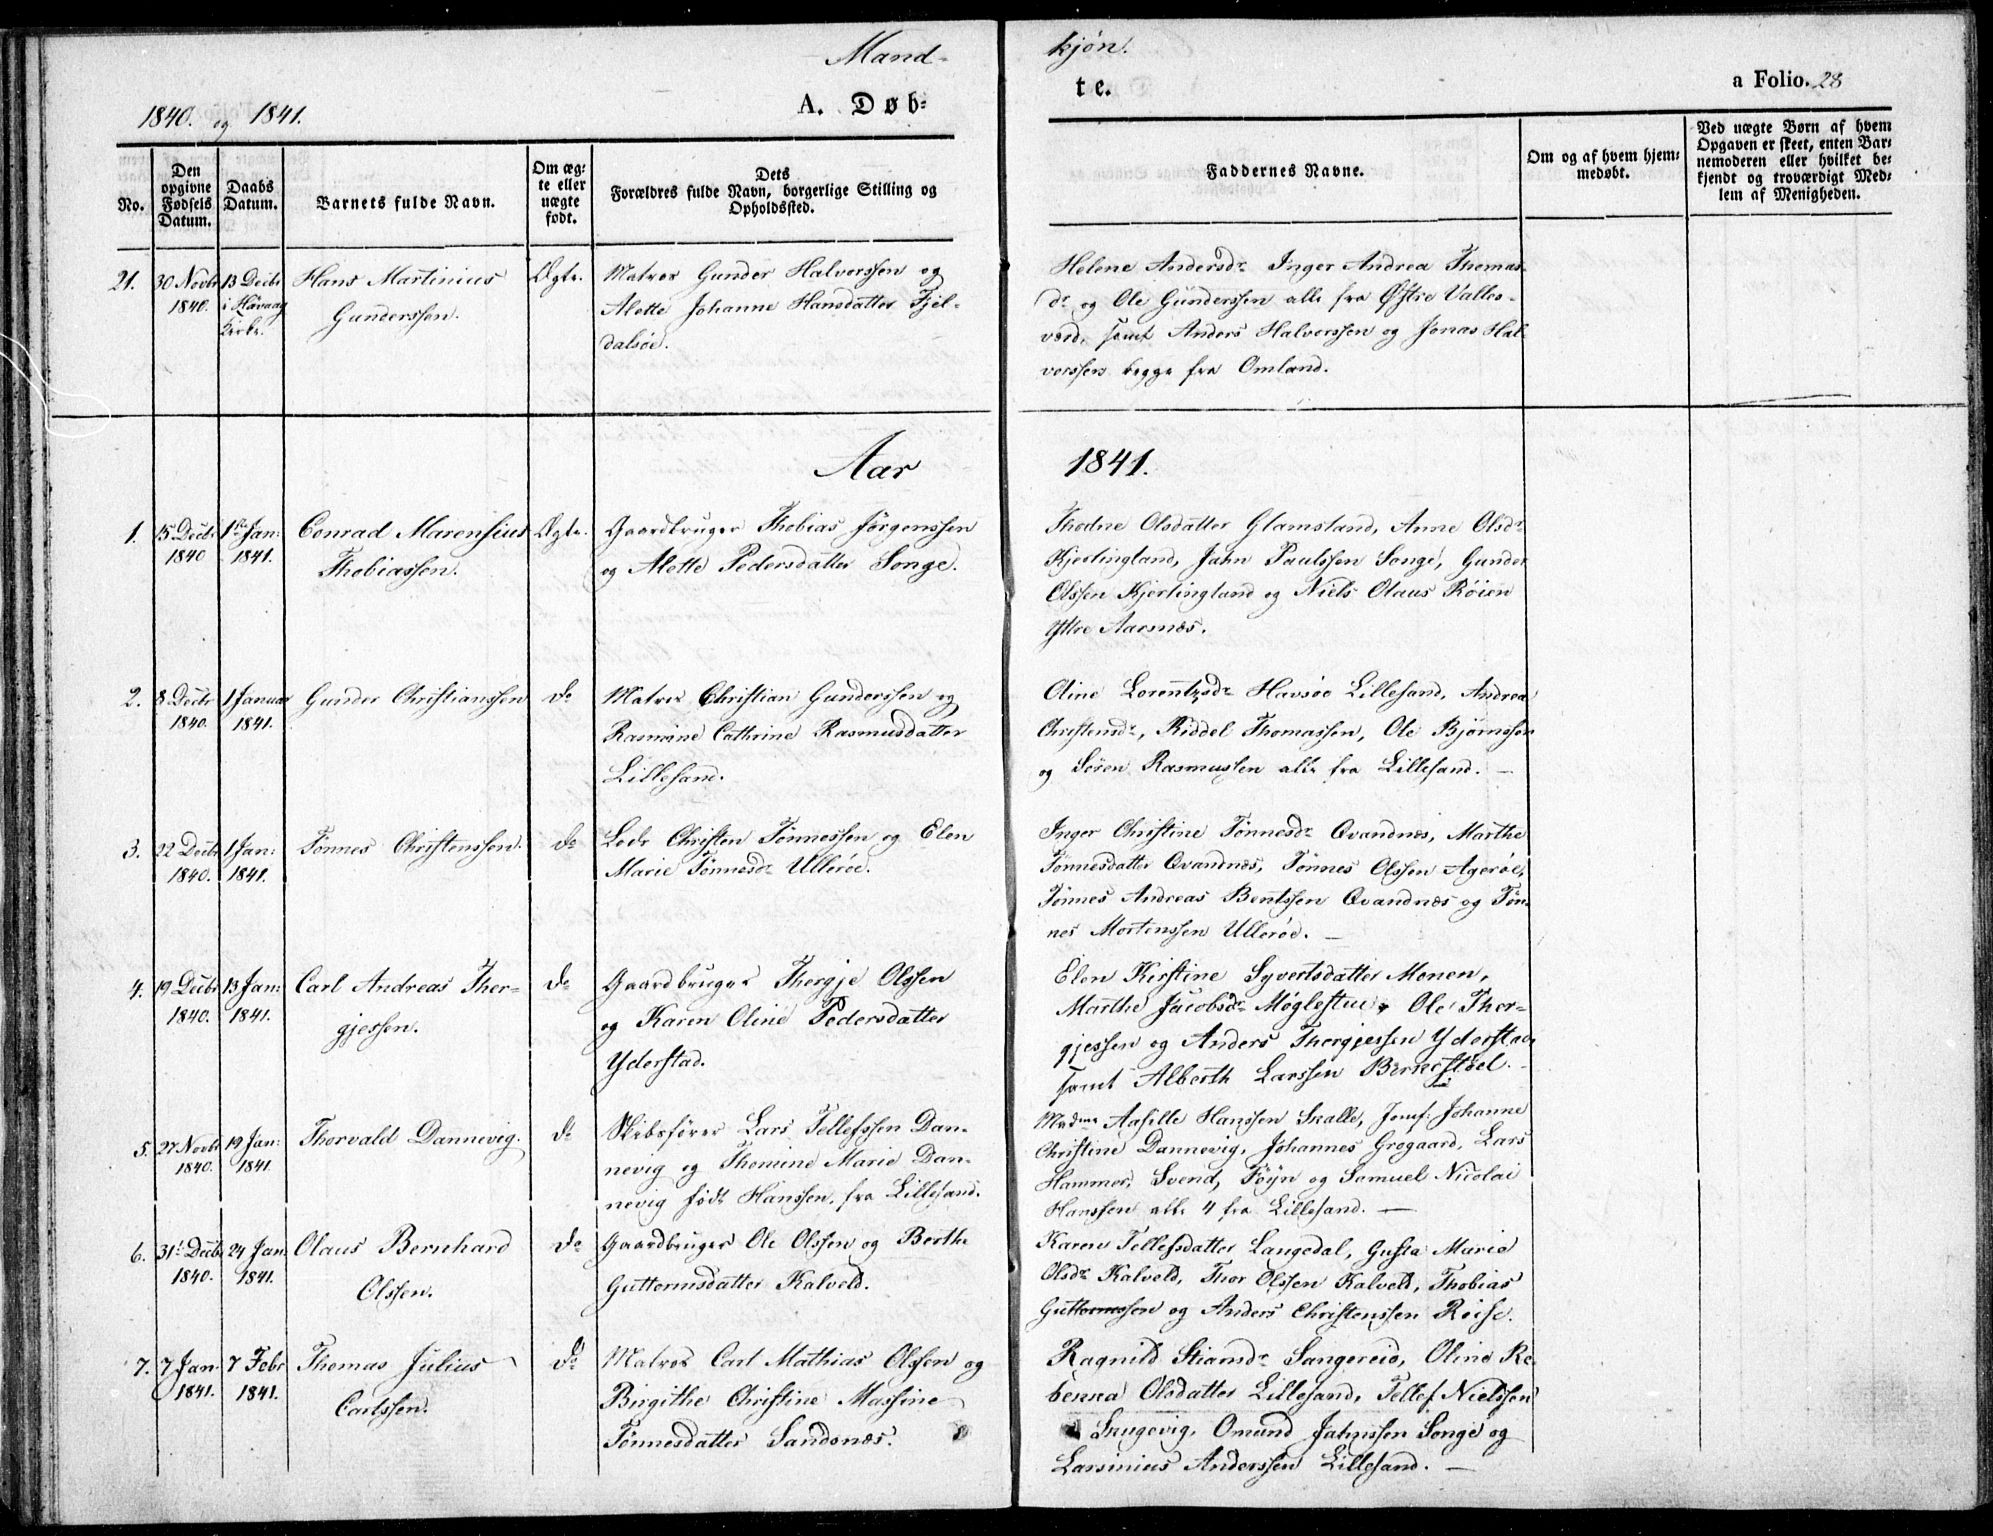 Mand-
kjøn.
1840. og 1841.
A. Døb-
te.
a Folio. 28
No.
Den opgivne Fødsels Datum.
Daabs Datum.
Barnets fulde Navn.
Om ægte eller uægte født.
Dets
Forældres fulde Navn, borgerlige Stilling og
Opholdssted.
Faddernes Navne.
Om og af hvem hjem-
medøbt.
Ved uægte Børn af hvem
Opgaven er skeet, enten Bar-
nemoderen eller hvilket be-
kjendt og troværdigt Med-
lem af Menigheden.
21. 30 Novbr 13 Decbr Hans Martinius Ægte. Matros Gunder Halvorssen og
1840. i Høvaag Gunderssen. Alette Johanne Hansdatter Fjel-
Kirke. dalsöe.
Helene Andersdr Inger Andrea Thomas-
dr og Ole Gunderssen alle fra Østre Valles-
værd, samt Anders Halvorssen og Jonas Hal-
vorssen begge fra Omland.
Aar
1841.
1. 15 Decbr 1ste Jan: Conrad Marensius Ægte. Gaardbruger Thobias Jörgenssen
1840 1841. Thobiassen. og Alette Pedersdatter Songe.
Thodne Olsdatter Glamsland, Anne Olsdr
Kjerlingland, Jahn Paulssen Songe, Gunder
Olssen Kjerlingland og Niels Olaus Röien
Yttre Aarsnes.
2. 8 Decbr 1 Januar Gunder Christianssen do Matros Christian Gunderssen og
1840. 1841. Rasmine Cathrine Rasmusdatter
Lillesand.
Oline Lorentzdr Havsöe Lillesand, Andrea
Christensdr, Riddel Thomassen, Ole Bjørnssen
og Sören Rasmussen alle fra Lillesand.
3. 22 Decbr 1 Jan: Tönnes Christenssen. do Lods Christen Tönnessen og Elen
1840. 1841. Marie Tönnesdr Ulleröe.
Inger Christine Tönnesdr Qvandnæs, Marthe
Tönnesdatter Qvandnæs, Tönnes Olssen Ageröe,
Tönnes Andreas Bentssen Qvandnæs og Tön-
nes Mortenssen Ulleröe.
4. 19 Decbr 13 Jan: Carl Andreas Ther- do Gaardbruger Thergje Olssen
1840. 1841. gjessen. og Karen Oline Pedersdatter
Yderstad.
Elen Kirstine Syvertsdatter Monen,
Marthe Jacobsdr Møglestue, Ole Ther-
gjessen og Anders Thergjessen Yderstad,
samt Alberth Larssen Bernestöel.
5. 27 Novbr 19 Jan: Thorvald Dannevig. do Skibsförer Lars Tellefssen Dan-
1840. 1841. nevig og Thomine Marie Dan-
nevig födt Hanssen, fra Lillesand.
Madme Aasille Hanssen Skalle, Jomf: Johanne
Christine Dannevig, Johannes Grogaard, Lars
Hammer, Svend Föyn og Samuel Nicolai
Hanssen alle 4 fra Lillesand.
6. 31t Decbr 24 Jan: Olaus Bernhard do Gaardbruger Ole Olssen og Berthe
1840. 1841. Olssen. Guttormsdatter Kalveld.
Karen Tellefsdatter Langedal, Gusta Marie
Olsdr Kalveld, Thor Olssen Kalveld, Thobias
Guttormssen og Anders Christenssen Röise.
7. 7 Jan: 7 Febr Thomas Julius do Matros Carl Mathias Olssen og
1841. 1841. Carlssen. Birgithe Christine Massine
Tönnesdatter Sandsnæs.
Ragnild Stiansdr Sangereid, Oline Re-
benna Olsdatter Lillesand, Tellef Nielssen
Skugevig, Omund Jahnssen Songe og
Larsinius Anderssen Lillesand.